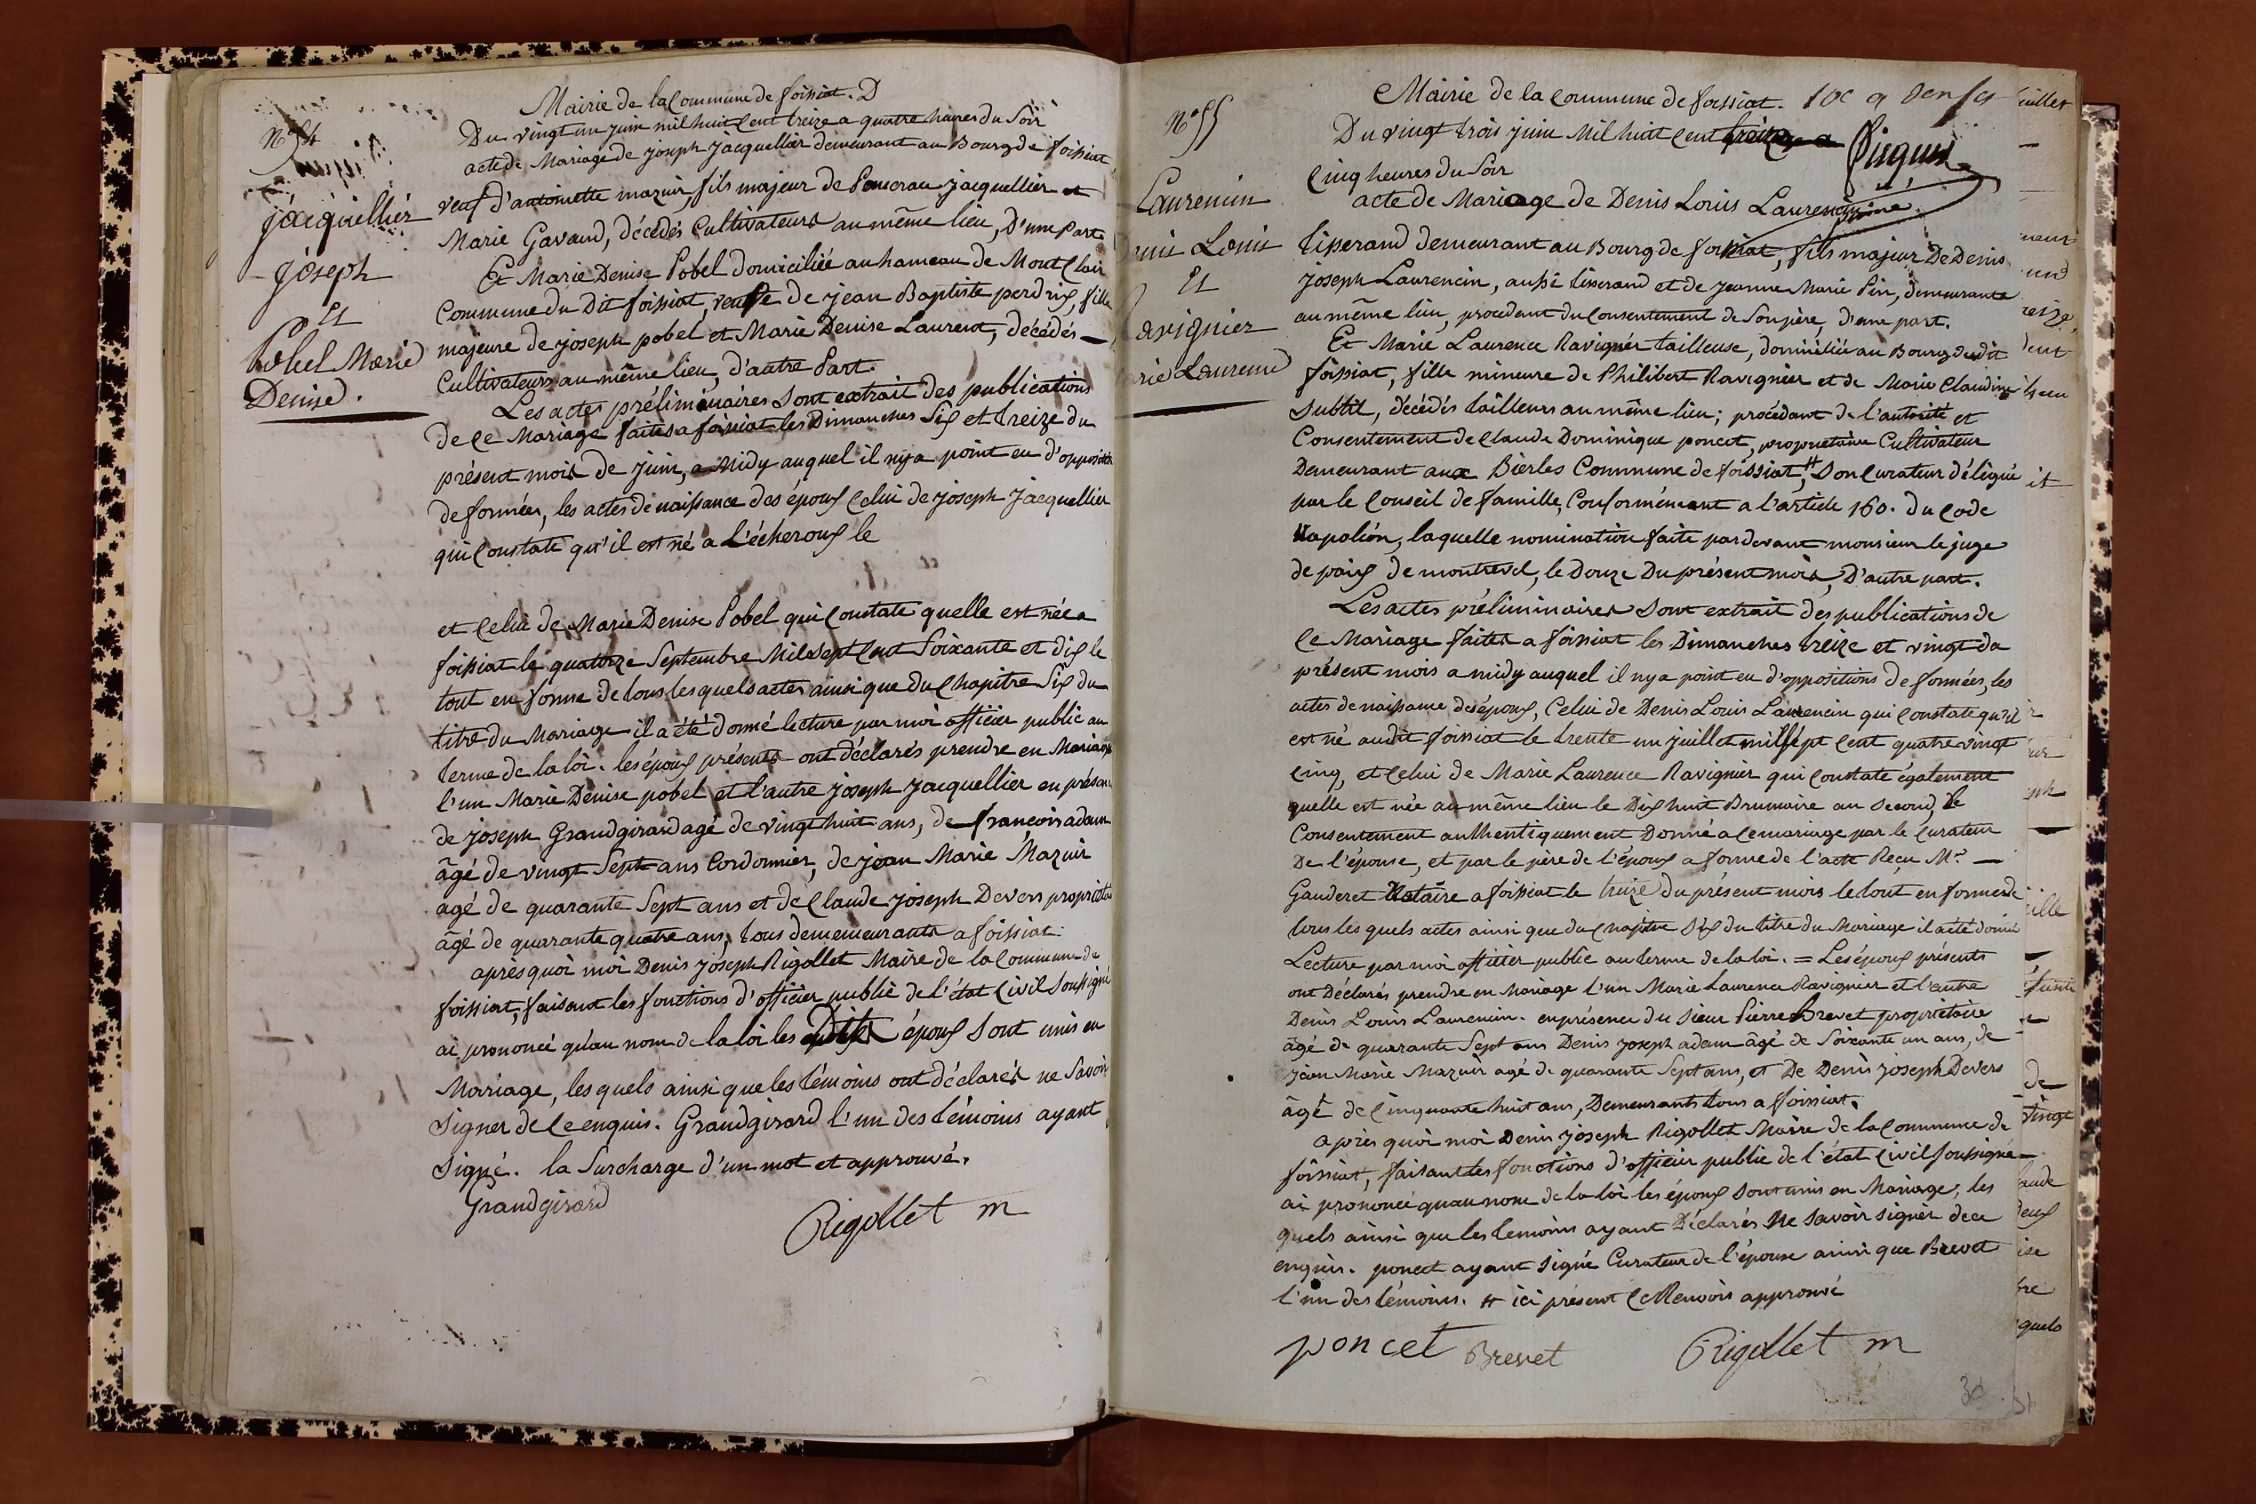 Mairie de la Commune de foissiat. D
N° 54
Du vingt un juin mil huit Cent treize a quatre heures du Soir
acte de Mariage de joseph jacquellier demeurant au Bourg de foissiat
veuf d'antoinette mazuir, fils majeur de Pancrau jacquellier et
Marie Gavand, décédés Cultivateurs au même lieu, D'une Part
jacquellier
joseph
Et
Pobel Marie
Denise.
Et Marie Denise Pobel domiciliée au hameau de Mont Clair
Commune du Dit foissiat, veuve de jean Baptiste perdrix, fille
majeure de joseph pobel et Marie Denise Laurent, décédés
Cultivateurs au même lieu, D'autre Part.
Les actes préliminaires Sont extrait des publications
de Ce Mariage faites a foissiat les Dimanches Six et treize du
présent mois de juin, a Midy auquel il ny a point eu d'opposition
de formées, les actes de naissance des époux Celui de joseph jacquellier
qui Constate qu'il est né a L'écheroux le
et Celui de Marie Denise Pobel qui Constate quelle est née a
foissiat le quatorze Septembre Mil Sept Cent Soixante et dix le
tout en forme de tous les quels actes ainsi que du Chapitre Six du
titre du Mariage il a été donné lecture par moi officier public au
terme de la loi. les époux présents ont déclarés prendre en Mariage
l'un Marie Denise pobel et l'autre joseph jacquellier en présence
de joseph Grandgirard agé de vingt huit ans, de francois adam
âgé de vingt Sept ans Cordonnier, de jean Marie Mazuir
agé de quarante Sept ans et de Claude joseph Devers propriétaire
âgé de quarante quatre ans, tous dememeurants a foissiat.
après quoi moi Denis joseph Rigollet Maire de la Commune de
foissiat, faisant les fonctions d'officier public de l'état Civil Soussigné
ai prononcé qu'au nom de la loi les Dits époux Sont unis en
Mariage, les quels ainsi que les témoins ont déclarés ne Savoir
Signer de Ce enquis. Grandgirard l'un des témoins ayant
Signé. la Surcharge d'un mot et approuvé.
Grandgirard
Rigollet m
Mairie de la Commune de foissiat.
N° 55
Du vingt trois juin Mil huit Cent treize a
Cinq heures du Soir
acte de Mariage de Denis Louis Laurencin
Laurencin
Denis Louis
Et
Ravignier
Marie Laurence
tisserand demeurant au Bourg de foissiat, fils majeur De Denis
joseph Laurencin, aussi tisserand et de jeanne Marie Pin, demeurants
au même lieu, procedant du Consentement de Son père, d'une part.
Et Marie Laurence Ravignier tailleuse, domiciliée au Bourg dudit
foissiat, fille mineure de Philibert Ravignier et de Marie Claudine
Subtil, décédés tailleurs au même lieu; procédant de l'autorité et
Consentement de Claude Dominique poncet, propriétaire Cultivateur
Demeurant aux Bierles Commune de foissiat, # Son Curateur délégué
par le Conseil de famille, Conformément a l'article 160. du Code
Napoléon, laquelle nomination faite pardevant monsieur le juge
de paix de montrevel, le Douze Du présent mois, D'autre part.
Les actes préliminaires Sont extrait des publications de
Ce Mariage faites a foissiat les Dimanches treize et vingt du
présent mois a midy auquel il ny a point eu d'oppositions de formées, les
actes de naissance des époux, Celui de Denis Louis Laurencin qui Constate qu'il
est né audit foissiat le trente un juillet mil Sept Cent quatre vingt
Cinq, et Celui de Marie Laurence Ravignier qui Constate également
quelle est née au même lieu le Dix huit Brumaire an Second, le
Consentement authentiquement Donné a Ce mariage par le Curateur
De l'épouse, et par le père de l'époux a forme de l'acte Reçu Me
Gauderet Notaire a foissiat le treize du présent mois le tout en forme de
tous les quels actes ainsi que du Chapitre Six du titre du Mariage il a été donné
Lecture par moi officier public au terme de la loi. = Les époux présents
ont Déclarés prendre en Mariage l'un Marie Laurence Ravignier et l'autre
Denis Louis Laurencin. en présence du Sieur Pierre Brevet propriétaire
âgé de quarante Sept ans Denis joseph adam âgé de Soixante un ans, de
jean Marie Mazuir agé de quarante Sept ans, et De Denis joseph Devers
âgé de Cinquante huit ans, Demeurants tous a foissiat.
après quoi moi Denis joseph Rigollet Maire de la Commune de
foissiat, faisant les fonctions d'officier public de l'état Civil Soussigné
ai prononcé quau nom de la loi les époux Sont unis en Mariage, les
quels ainsi que les temoins ayant Déclarés Ne Savoir Signer de ce
enquis. poncet ayant Signé Curateur de l'épouse ainsi que Brevet
l'un des témoins. # ici présent Ce Renvois approuvé
poncet Brevet Rigollet m
30